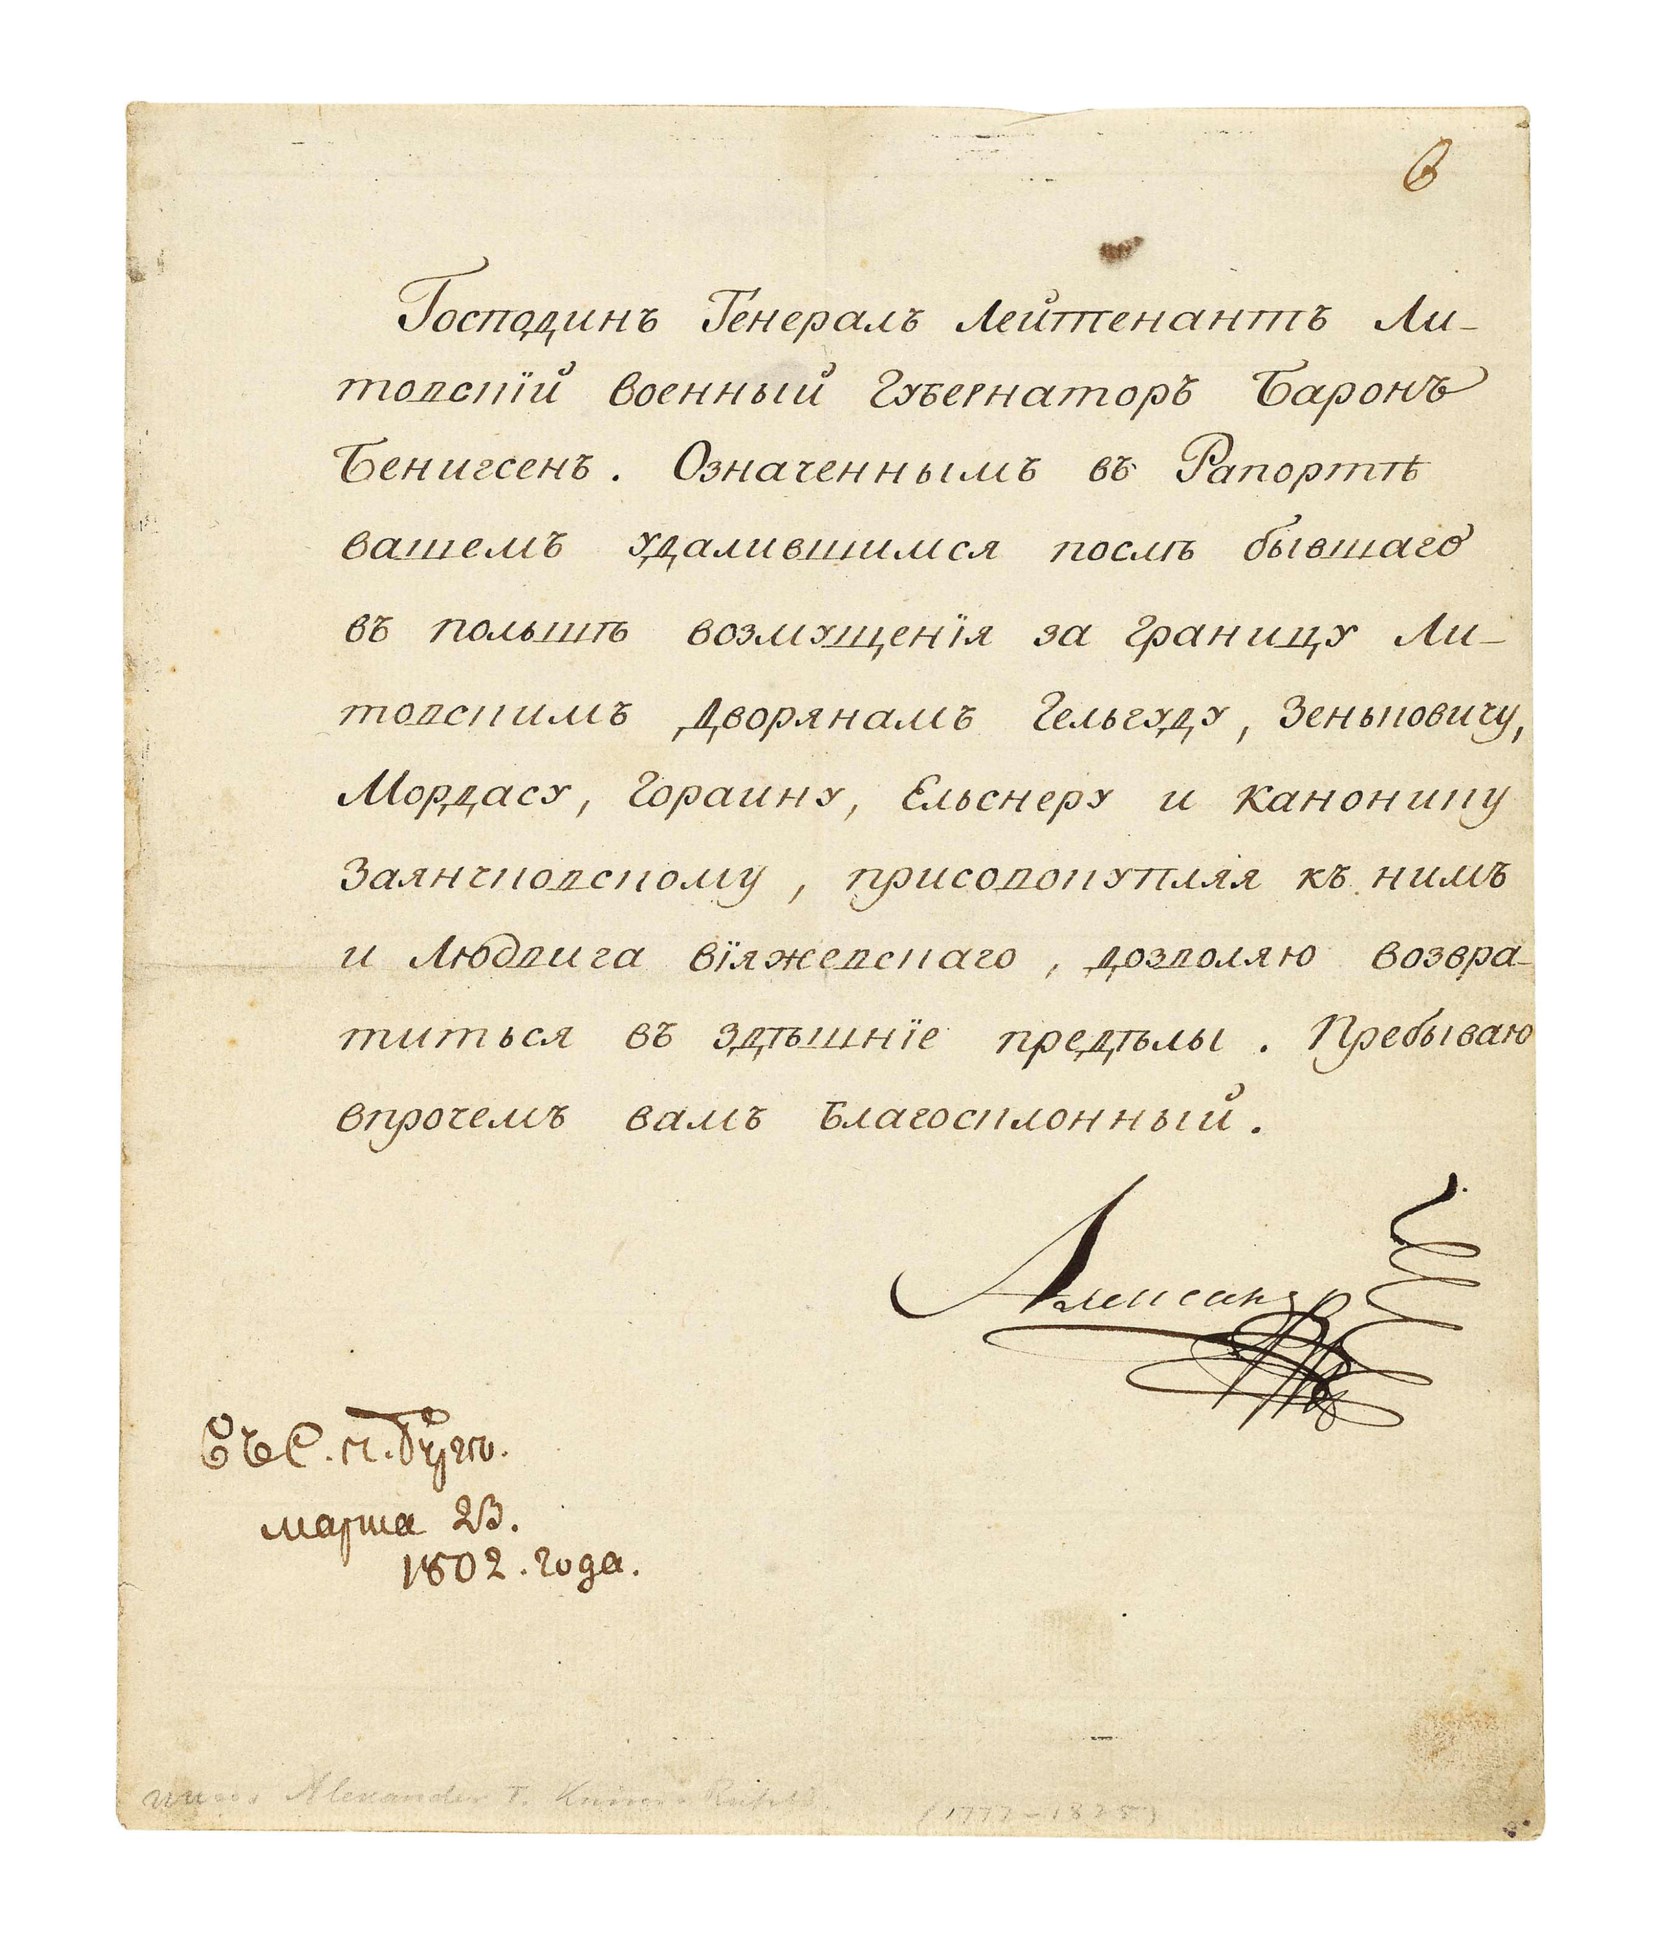 6
Господинъ Генералъ Лейтенантъ Ли-
товскїй военный Губернаторъ Баронъ
Бенигсенъ. Означеннымъ въ Рапортѣ
вашемъ удалившимся послѣ бывшаго
въ польшѣ возмущенїя за границу Ли-
товскимъ Дворянамъ Гельгуду, Зеньковичу,
Мордасу, Гораину, Ельснеру и Канонику
Заянчковскому, присовокупляя къ нимъ
и Людвига вїяжевскаго, дозволяю возвра-
титься въ здѣшнїе предѣлы. Пребываю
впрочемъ вамъ благосклонный.
Александръ
Въ С.П.Бургѣ.
марта 23.
1802. года.
Alexander I. (1777-1825)